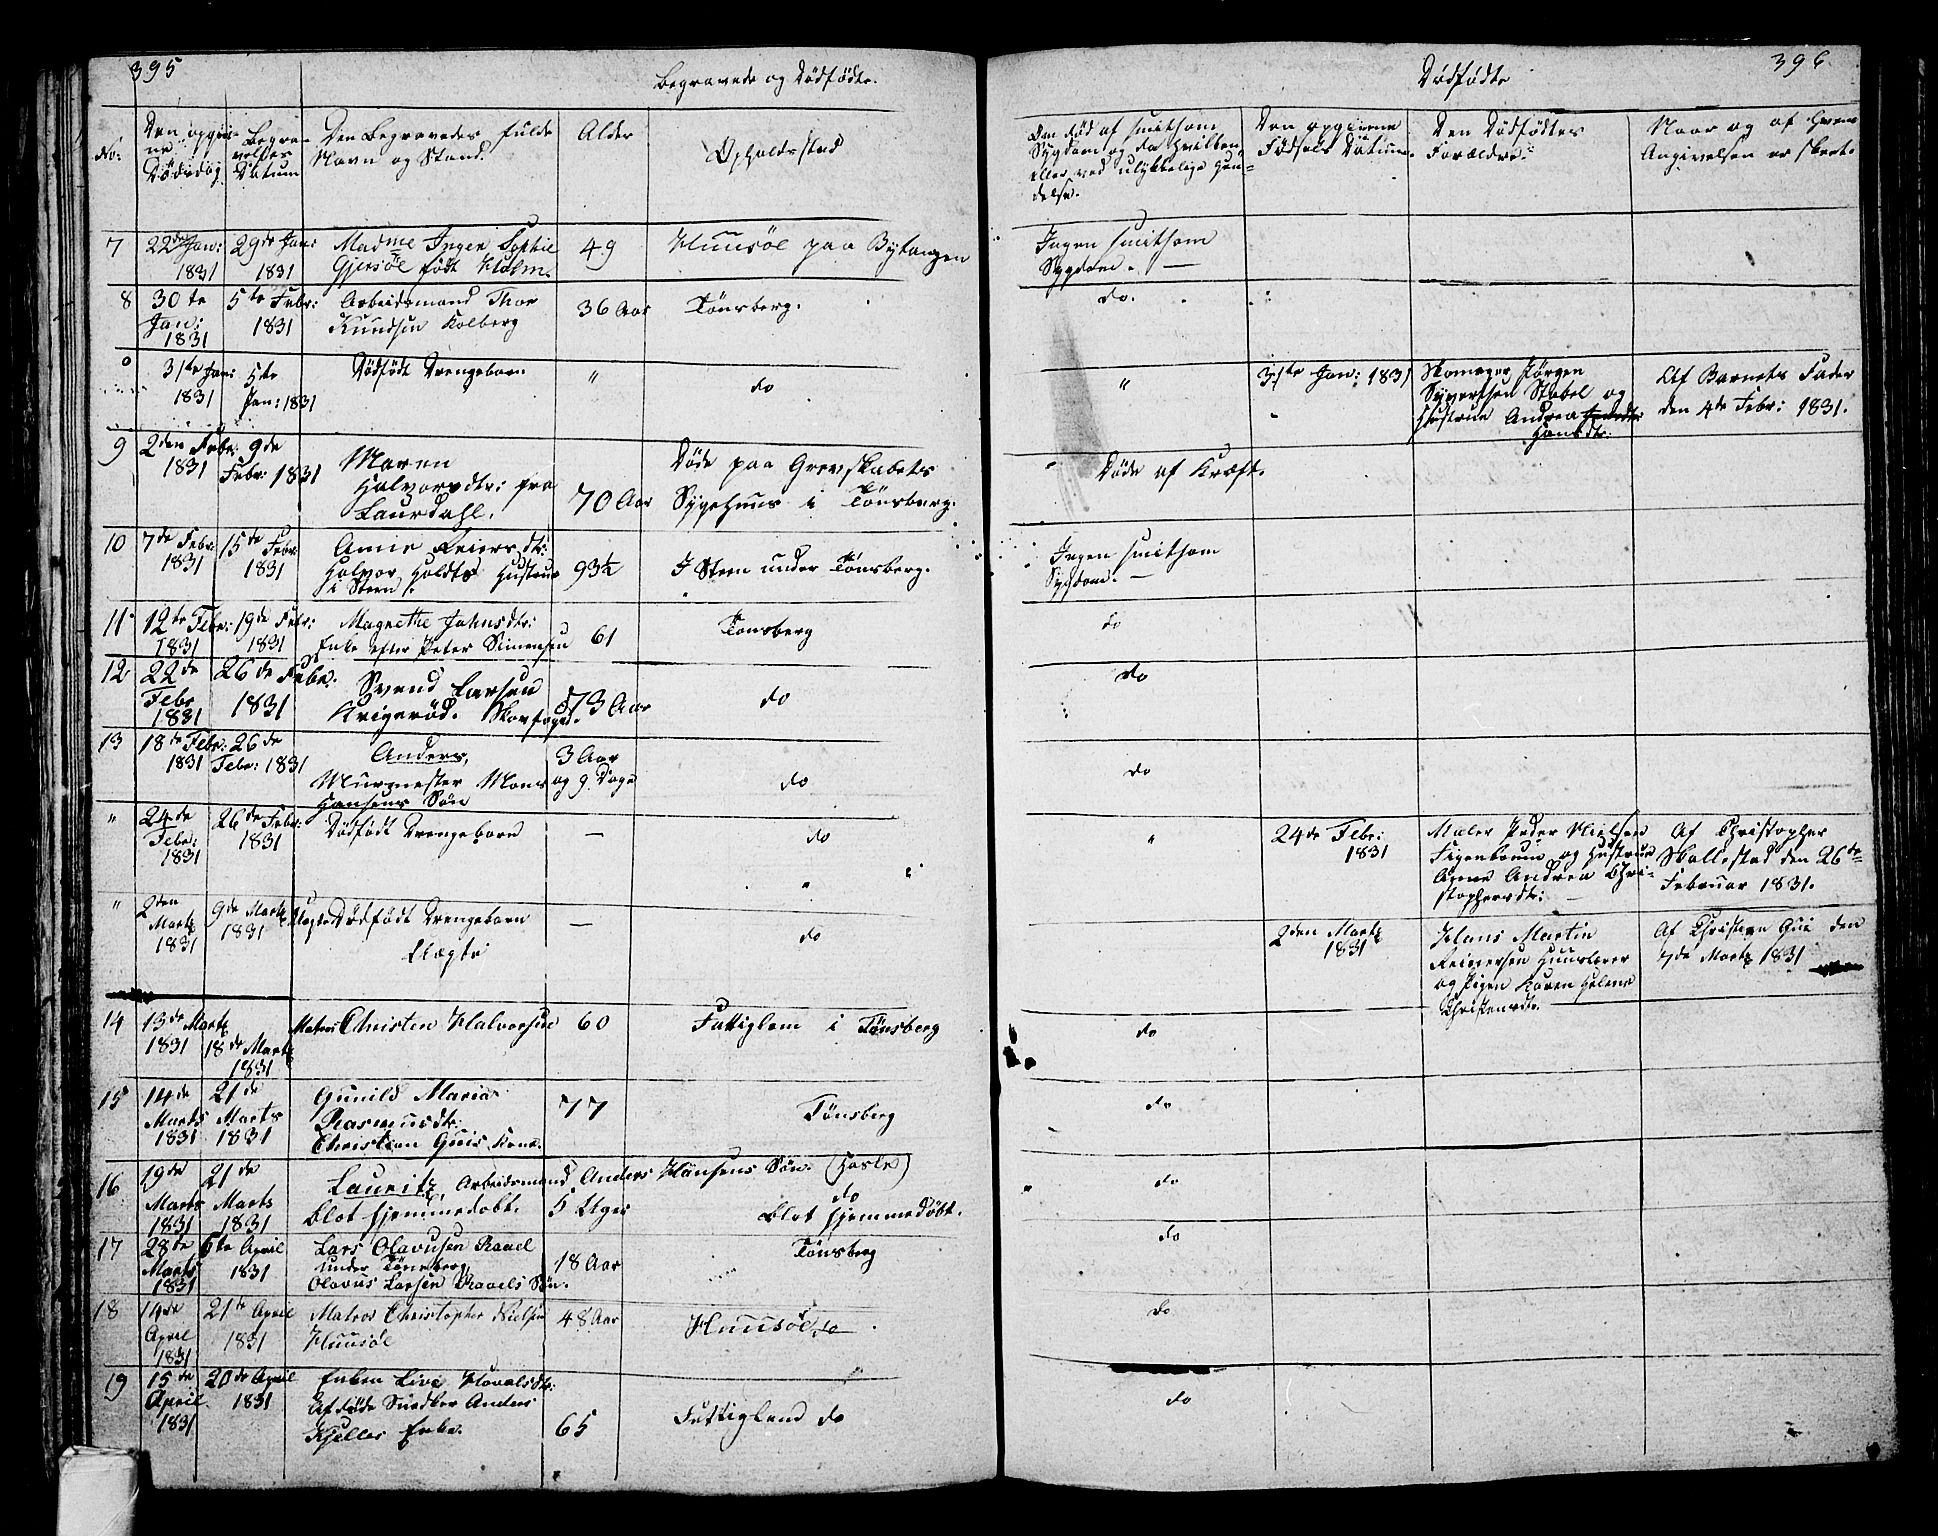 395
Begravede og Dødfødte.
No:
Den opgivne Dødsdag
Begravelses Datum
Den Begravedes fulde Navn og Stand.
Alder
Opholdssted
7
22de Jan: 1831
29de Jan: 1831
Madme Inger Sophie
Gjersøe født Holm.
49
Huusøe paa Bytangen
8
30te Jan: 1831
5te Febr: 1831
Arbeidsmand Thor
Knudsen Kolberg
36 Aar
Tønsberg.
31te Jan: 1831
5te Jan: 1831
Dødfødt Drengebarn
"
do
9
2den Febr: 1831
9de Febr: 1831
Maren
Halvorsdtr: fra
Laurdahl.
70 Aar
Døde paa Grevskabets
Sygehuus i Tønsberg.
10
7de Febr: 1831
15de Febr 1831
Anne Reiersdtr:
Halvor Holdts Hustrue
i Steen
93½
I Steen under Tønsberg.
11
12te Febr: 1831
19de Febr: 1831
Magrethe Johnsdtr:
Enke efter Peter Simensen
61
Tønsberg
12
22de Febr 1831
26de Febr. 1831
Svend Larsen
Krigerød. Skovfoged.
73 Aar
do
13
18de Febr: 1831
26de Febr: 1831
Anders,
Murmester Mons
Hansens Søn
3 Aar
og 9 Dage
do
"
24de Febr: 1831
26de Febr: 1831
Dødfødt Drengebarn
—
do
"
2den Martz 1831
9de Martz 1831
Dødfødt Drengebarn
Uægte
—
do
14
13de Martz 1831
18de Martz 1831
Matros Christen Halvorsen
60
Fattiglem i Tønsberg
15
14de Marts 1831
21de Marts 1831
Gunild Maria
Rasmusdtr:
Christian Guis Kone.
77
Tønsberg
16
19de Marts 1831
21de Marts 1831
Lauritz, Arbeidsmand Anders Hansens Søn (Hasle)
blot hjemmedøbt.
5 Uger
do
blot hjemmedøbt.
17
28de Marts 1831
6te April 1831
Lars Olavusen Ravel
under Tønsberg
Olavus Larsen Ravels Søn.
18 Aar
Tønsberg
18
14de April 1831
21te April 1831
Matros Christopher Nielsen
Huusøe
48 Aar
Huusøe do
19
15de April 1831
20de April 1831
Enken Live
Afdøde Snedker Anders
Kjelles Enke.
65
Fattiglem do
396
Dødfødte
Om død af smitsom
Sygdom og da hvilken,
eller ved ulykkelig Hæn-
delse.
Den opgivne
Fødsels Datum.
Den Dødfødtes
Forældre.
Naar og af hvem
Angivelsen er skeet.
Ingen smitsom
Sygdom. —
do.
"
31te Jan: 1831
Skomager Jørgen
Syvertsen Stabel og
Hustrue Andrea
Hansdtr:
Af Barnets Fader
den 4de Febr: 1831.
Døde af Kræft.
Ingen smitsom
Sygdom. —
do
do
do
"
24de Febr: 1831
Maler Peder Nielsen
Figenbaum og Hustrue
Anne Andrea Chri-
stophersdtr:
Af Christopher
Skallestad den 26de
Februar 1831.
2den Martz 1831
Hans Martin
Reiersen Huuslærer
og Pigen Karen Helene
Christensdtr.
Af Christian Gui den
7de Martz 1831
do
do
do
do
do
do